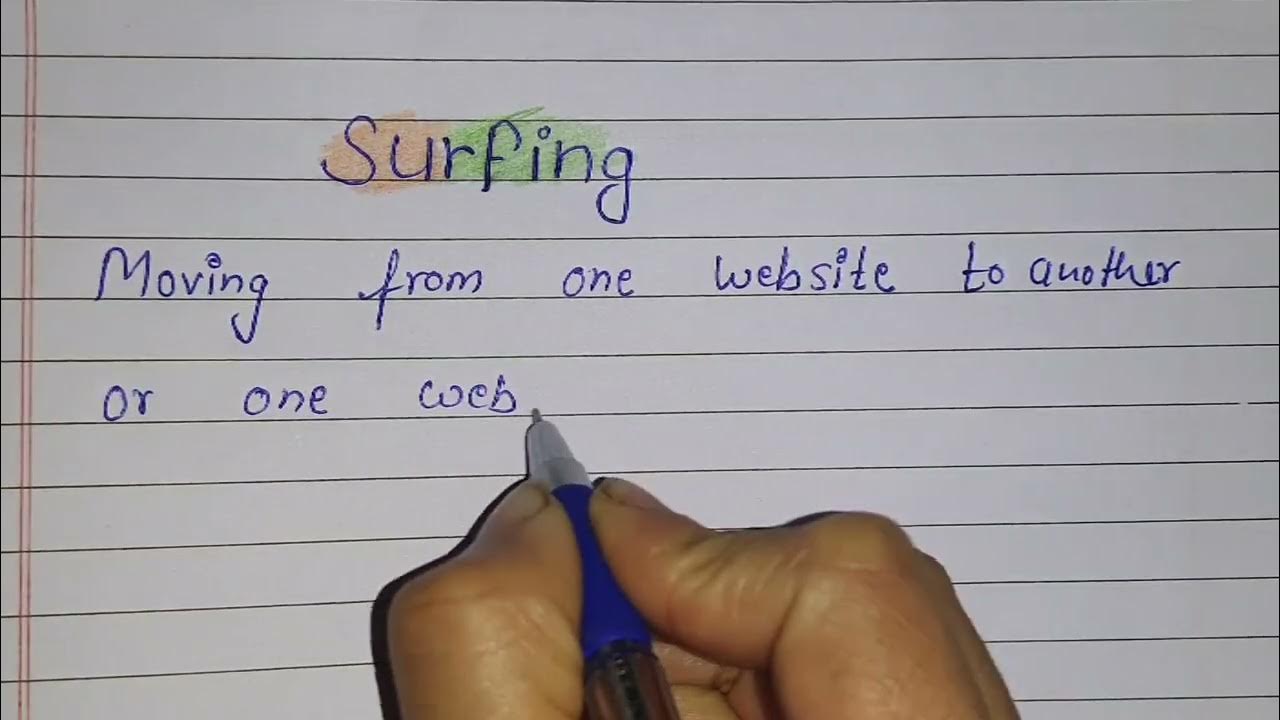 Surfing
Moving from one website to another
or one web